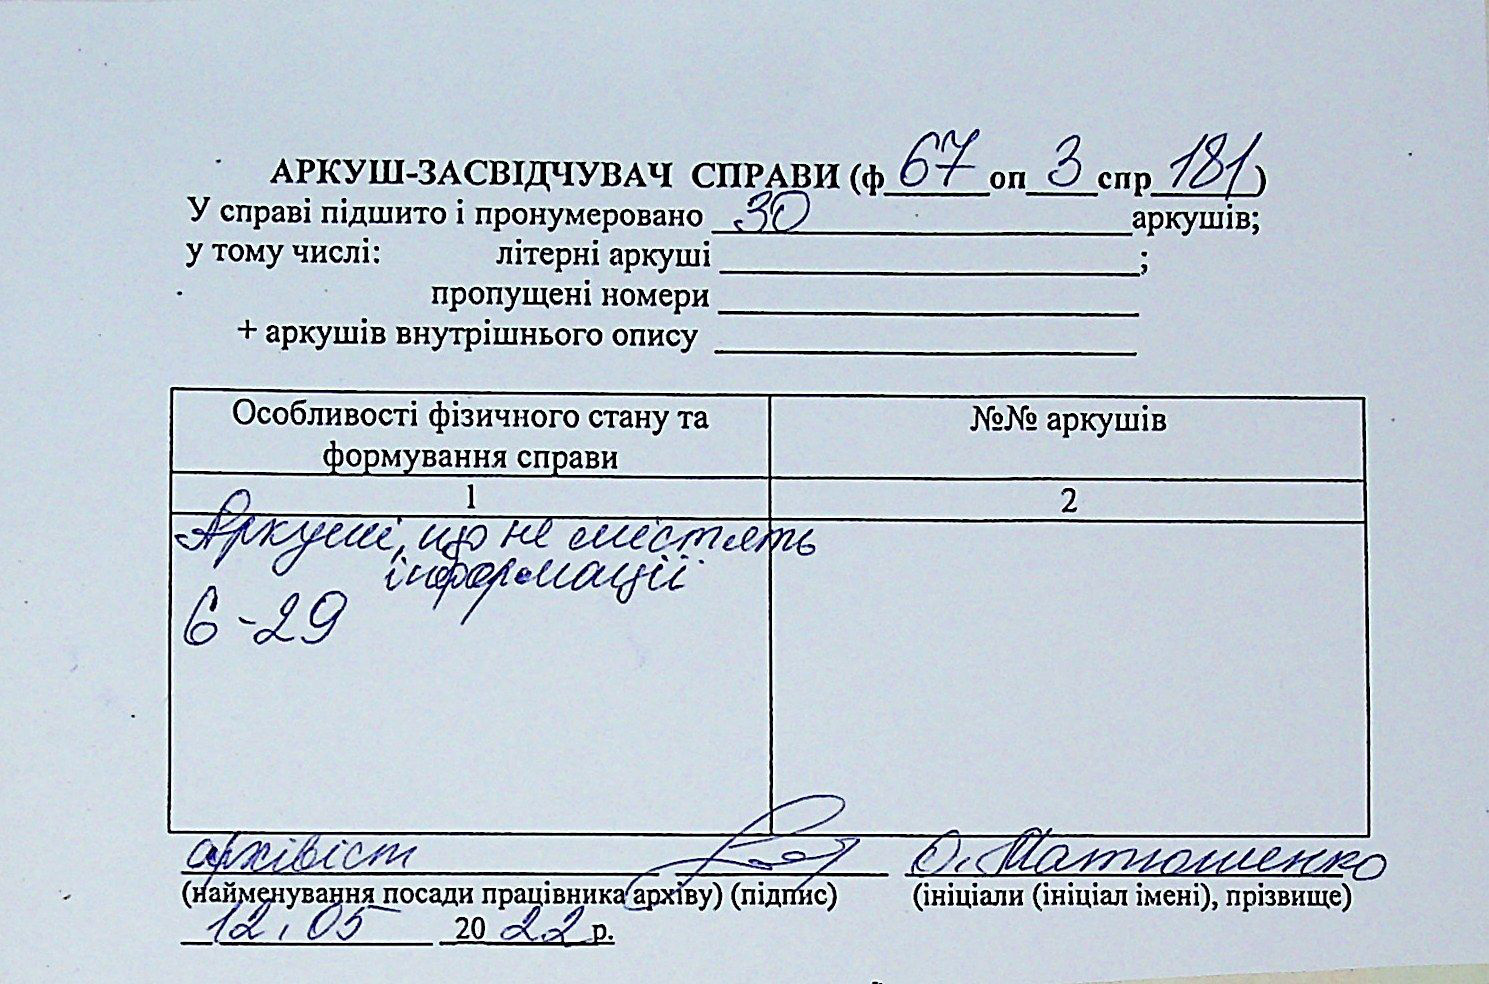 АРКУШ-ЗАСВІДЧУВАЧ СПРАВИ (ф 67 оп 3 спр 181)
У справі підшито і пронумеровано 30 аркушів;
у тому числі: літерні аркуші ;
пропущені номери
+ аркушів внутрішнього опису
Особливості фізичного стану та
формування справи
№№ аркушів
1 2
Аркуші, що не містять
інформації
6-29
архівіст О. Матюшенко
(найменування посади працівника архіву) (підпис) (ініціали (ініціал імені), прізвище)
12.05 2022 р.